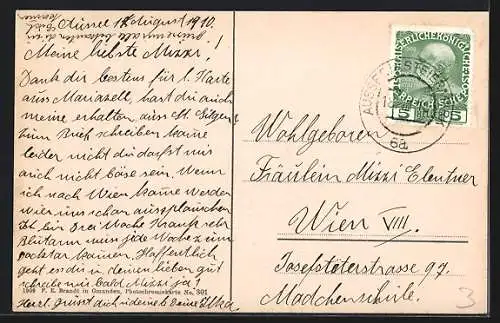 Aussee 18 August 1910.
Meine liebste Mizzi!
Dank dir bestens für l. Karte
aus Mariazell, hast du auch
meine erhalten, aus St. Gilgen?
zum Brief schreiben kame
leider nicht du darfst mir
auch nicht böse sein. Wenn
ich nach Wien kame werden
wir uns schon ausplauschen
Ich bin drei Woche krank sehr
Blutarm mus jede Woche zum
Doktor kamen. Hoffentlich
geht es dir u. deinen lieben gut
schreibe mir bald Mizzi ja!
Herzl. grüsst dich u. deine l.
1909 F. E. Brandt in Gmunden, Photochromiekarte No. 301
KAISERLICHE KÖNIGLICHE
ÖSTERREICHISCHE POST
5 5
AUSSEE IN STEIERMARK
6a
Wohlgeboren
Fräulein Mizzi Elentner
Wien VIII.
Josefstöterstrasse 97.
Madchenschule.
3